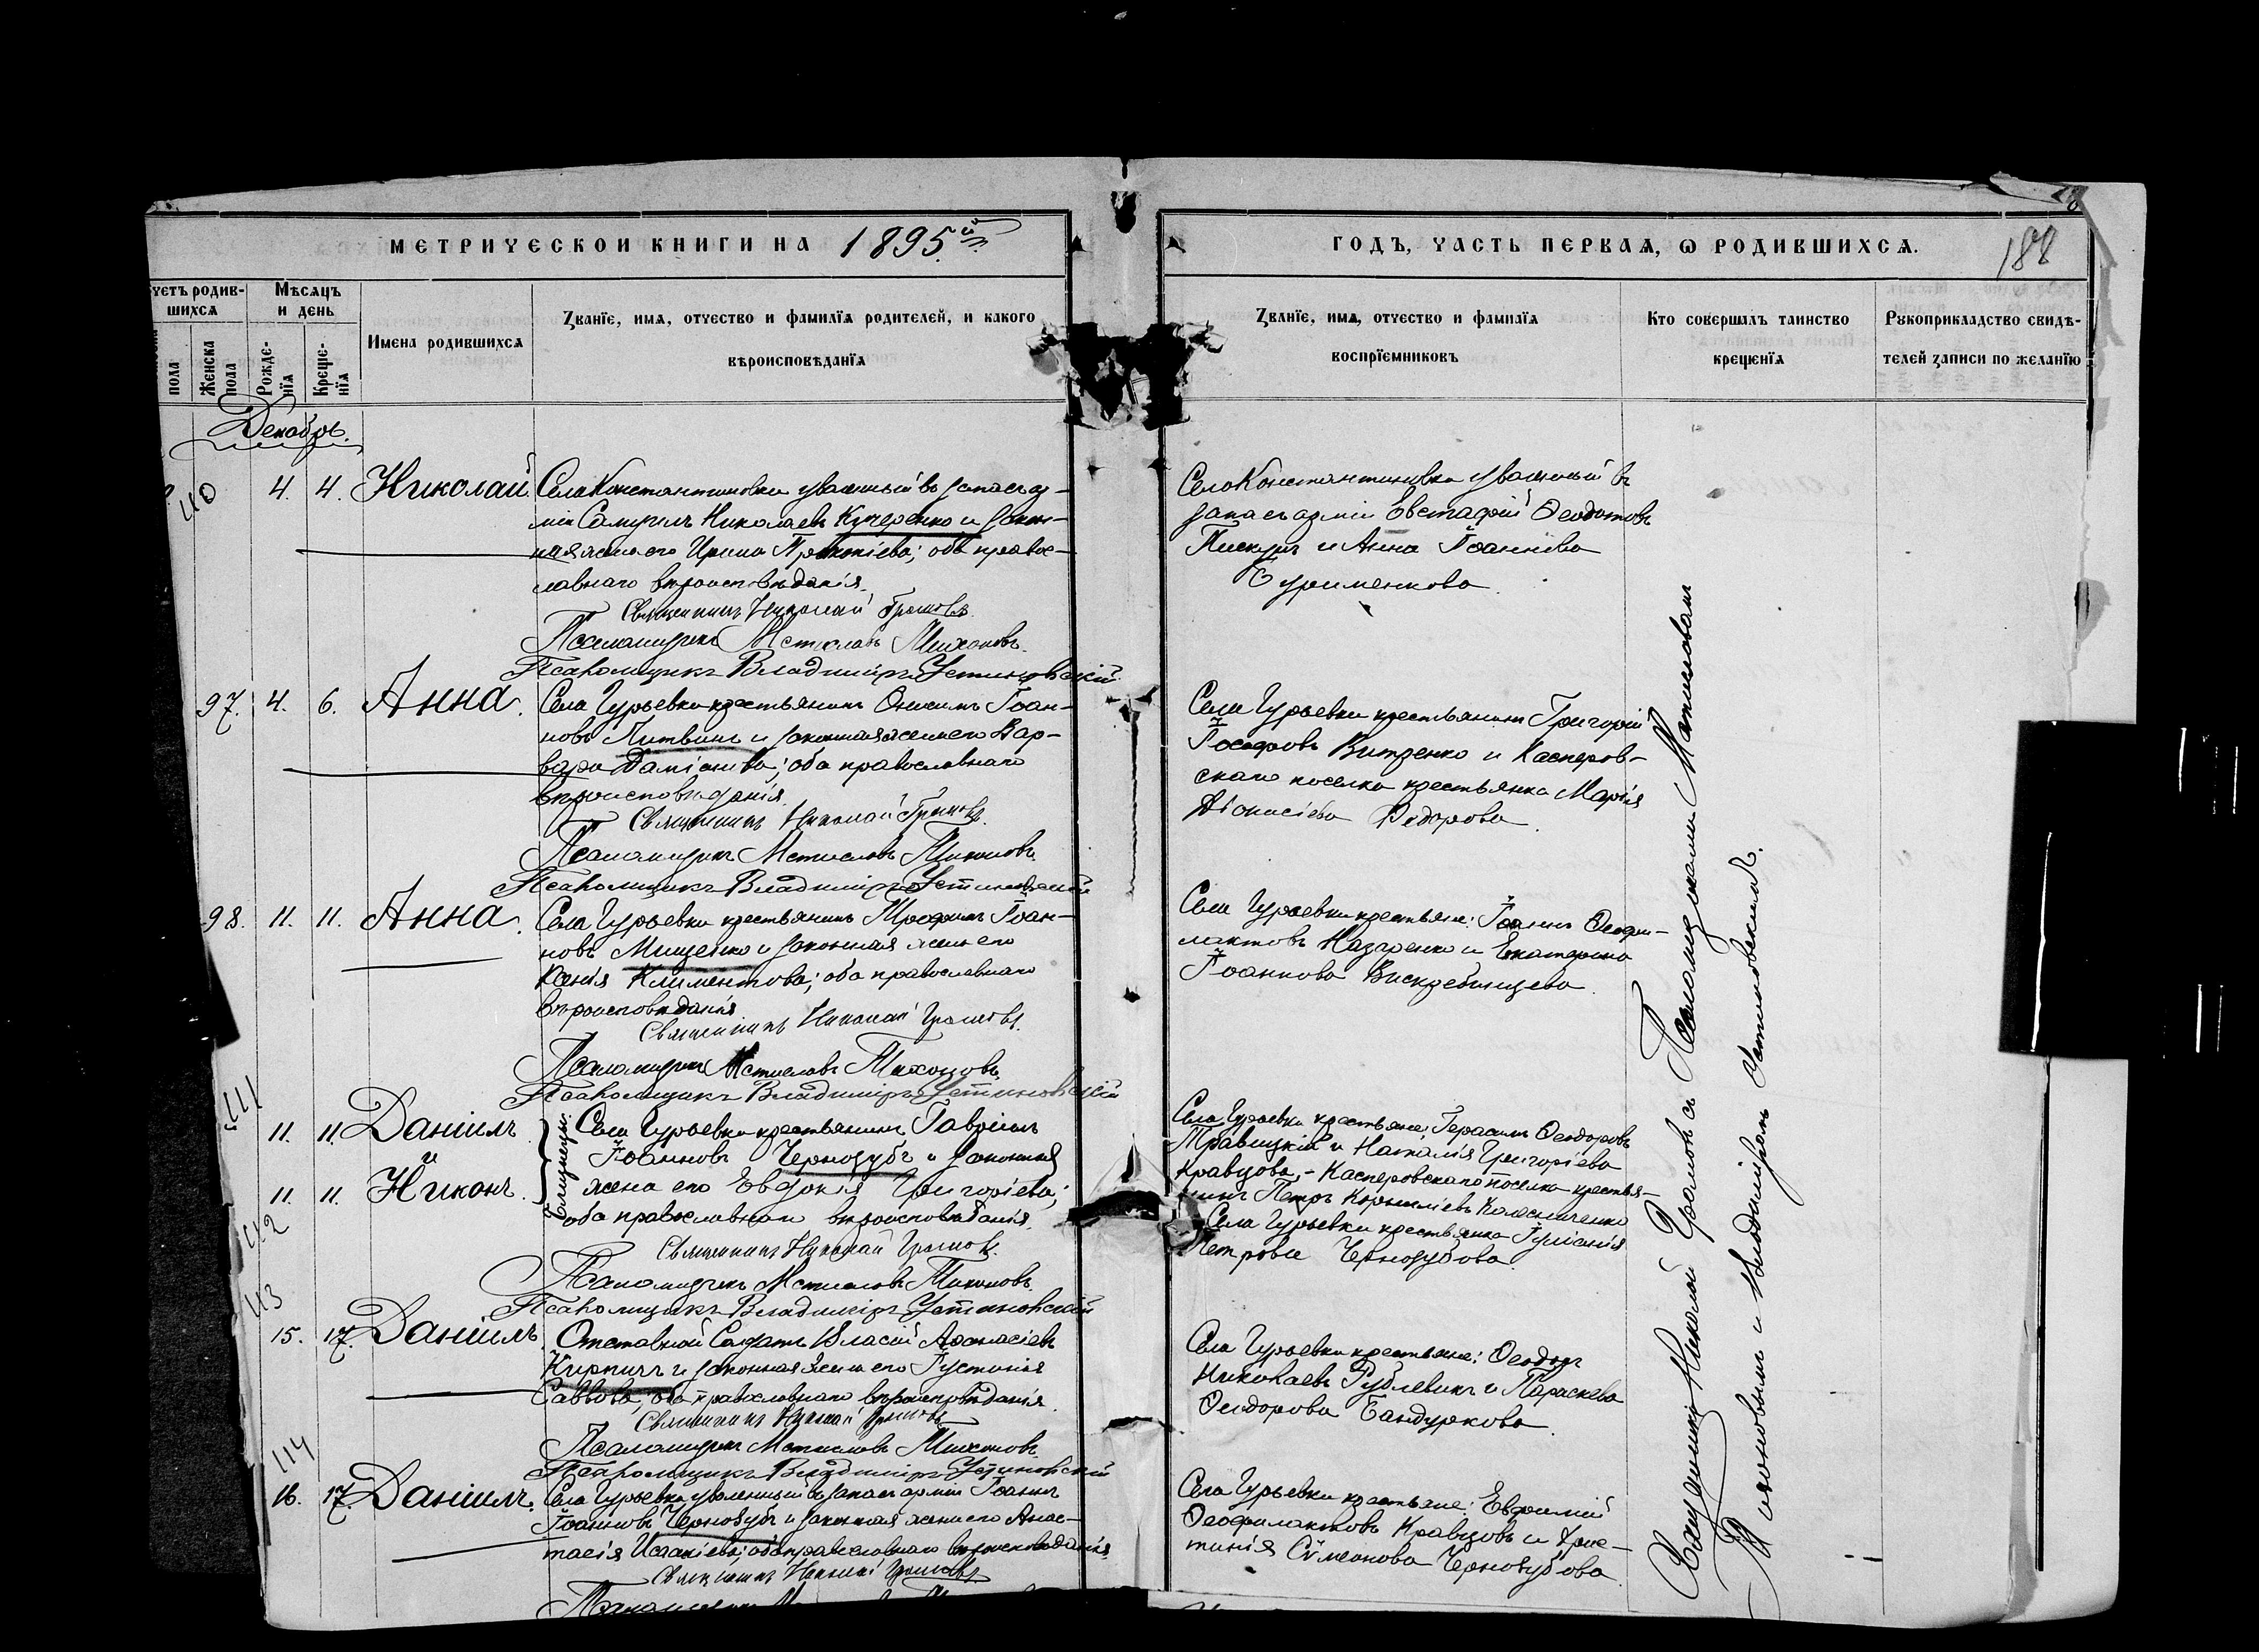 МЕТРИЧЕСКОЙ КНИГИ НА 1895й
ГОДЪ, ЧАСТЬ ПЕРВАЯ, Ѡ РОДИВШИХСЯ.
188
четъ родив-
шихся
Мѣсяцъ
и день
пола
Женска
пола
Рожде-
нїя
Креще-
нїя
Имена родившихся
Званїе, имя, отчество и фамилїя родителей, и какого
вѣроисповѣданїя
Званїе, имя, отчество и фамилїя
воспрїемниковъ
Кто совершалъ таинство
крещенїя
Рукоприкладство свидѣ-
телей записи по желанїю
Декабрь.
110
4. 4. Николай.
Села Константиновки уволенный въ запасъ ар-
міи Самуилъ Николаевъ Кучеренко и закон-
ная жена его Ирина Прокопіева; оба правос-
лавнаго вѣроисповѣданія.
Священникъ Николай Громовъ.
Псаломщикъ Мстиславъ Тихоновъ.
Псаломщикъ Владиміръ Устиновскій
Села Константиновки уволенный въ
запасъ арміи Евстафій Ѳеодотовъ
Пискунъ и Анна Іоаннова
Буримекова.
97. 4. 6. Анна.
Села Гурьевки крестьянинъ Онисимъ Іоан-
новъ Литвинъ и законная жена его Вар-
вара Даміанова; оба православнаго
вѣроисповѣданія.
Священникъ Николай Громовъ.
Псаломщикъ Мстиславъ Тихоновъ.
Псаломщикъ Владиміръ Устиновскій
Села Гурьевки крестьянинъ Григорій
Іосифовъ и Касперов-
скаго поселка крестьянка Марія
Діонисіева Ѳедорова.
98. 11. 11. Анна.
Села Гурьевки крестьянинъ Трофимъ Іоан-
новъ Мищенко и законная жена его
Ксенія Климентова; оба православнаго
вѣроисповѣданія
Священникъ Николай Громовъ.
Псаломщикъ Мстиславъ Тихоновъ.
Псаломщикъ Владиміръ Устиновскій
Села Гурьевки крестьяне: Іоаннъ Ѳеофи-
лактовъ Назаренко и Екатерина
Іоаннова
111
11. 11. Даніилъ
и
11. 11. Никонъ.
112
Близнецы.
Села Гурьевки крестьянинъ Гавріилъ
Іоанновъ Чернозубъ и законная
жена его Евдокія Григоріева;
оба православнаго вѣроисповѣданія.
Священникъ Николай Громовъ.
Псаломщикъ Мстиславъ Тихоновъ.
Псаломщикъ Владиміръ Устиновскій
Села Гурьевки крестьяне: Герасимъ Ѳеодоровъ
Травицкій и Наталія Григоріева
Кравцова, - Касперовскаго поселка крестья-
нинъ Петръ Корниліевъ Колесниченко
Села Гурьевки крестьянка Іуліанія
Петрова Чернозубова.
113
15. 17. Даніилъ.
Отставной Солдатъ Власій Аѳанасіевъ
Кирпичъ и законная жена его Іустинія
Саввова, оба православнаго вѣроисповѣданія.
Священникъ Николай Громовъ
Псаломщикъ Мстиславъ Тихоновъ
Псаломщикъ Владиміръ Устиновскій
Села Гурьевки крестьяне: Ѳеодоръ
Николаевъ и Параскева
Ѳеодорова Бандуркова.
114
16. 17. Даніилъ.
Села Гурьевки уволенный въ запасъ арміи Іоаннъ
Іоанновъ Чернозубъ и законная жена его Анас-
тасія Исаакіева; оба православнаго вѣроисповѣданія
Священникъ Николай Громовъ.
Села Гурьевки крестьяне: Евфимій
Ѳеофилактовъ Кравцовъ и Хрис-
тинія Сѵмеонова Чернозубова.
Священникъ Николай Громовъ съ Псаломщиками Мстиславомъ
Тихоновымъ и Владиміромъ Устиновскимъ.